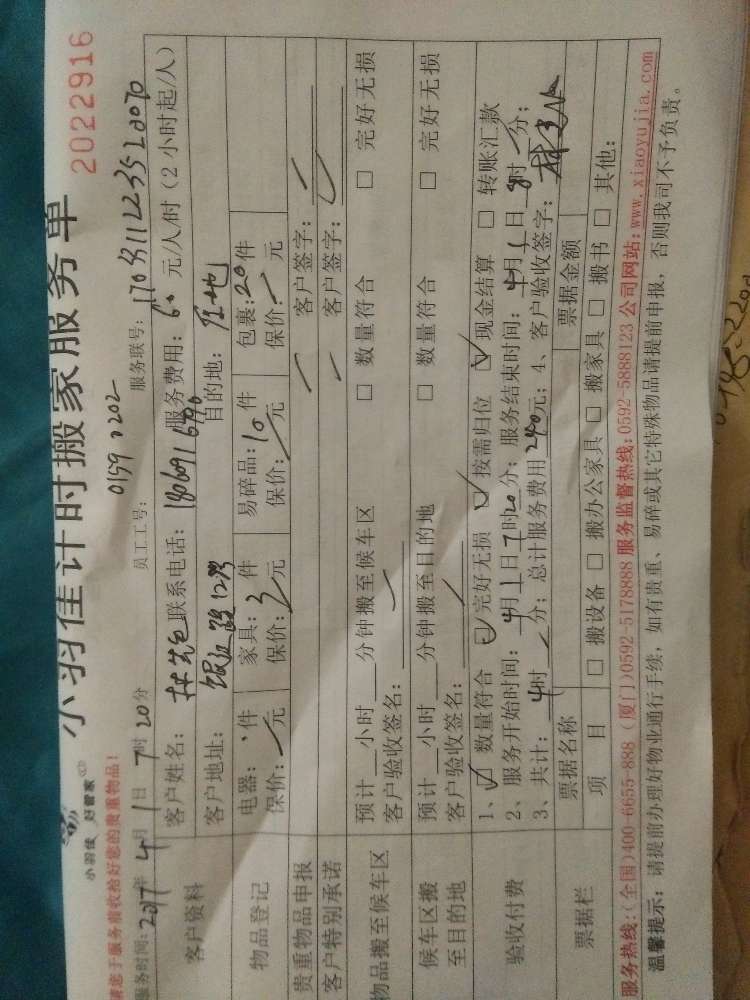 小羽佳计时搬家服务单
2022916
小羽佳 好管家
请您于服务前收拾好您的贵重物品!
员工工号: 0159 0202 服务联号: 170311223520070
服务时间: 2017年4月1日7时20分
客户资料 客户姓名: 林 联系电话: 服务费用: 60元/人/时(2小时起/人)
客户地址: 目的地:
物品登记 电器: 件 家具: 3件 易碎品: 10件 包裹: 20件
保价: 元 保价: 元 保价: 元 保价: 元
贵重物品申报 客户签字:
客户特别承诺 客户签字:
物品搬至候车区 预计 小时 分钟搬至候车区 □ 数量符合 □ 完好无损
客户验收签名:
候车区搬至目的地 预计 小时 分钟搬至目的地 □ 数量符合 □ 完好无损
客户验收签名:
验收付费 1、☑ 数量符合 ☑ 完好无损 ☑ 按需归位 ☑ 现金结算 □ 转账汇款
2、服务开始时间: 4月1日7时20分; 服务结束时间: 4月1日8时 分;
3、共计: 4时 分; 总计服务费用240元; 4、客户验收签字:
票据栏 票据名称 票据金额
项目 □ 搬设备 □ 搬办公家具 □ 搬家具 □ 搬书 □ 其他:
服务热线:(全国)400-6655-888 (厦门)0592-5178888 服务监督热线:0592-5888123 公司网站:www.xiaoyujia.com
温馨提示: 请提前办理好物业通行手续, 如有贵重、易碎或其它特殊物品请提前申报, 否则我司不予负责。